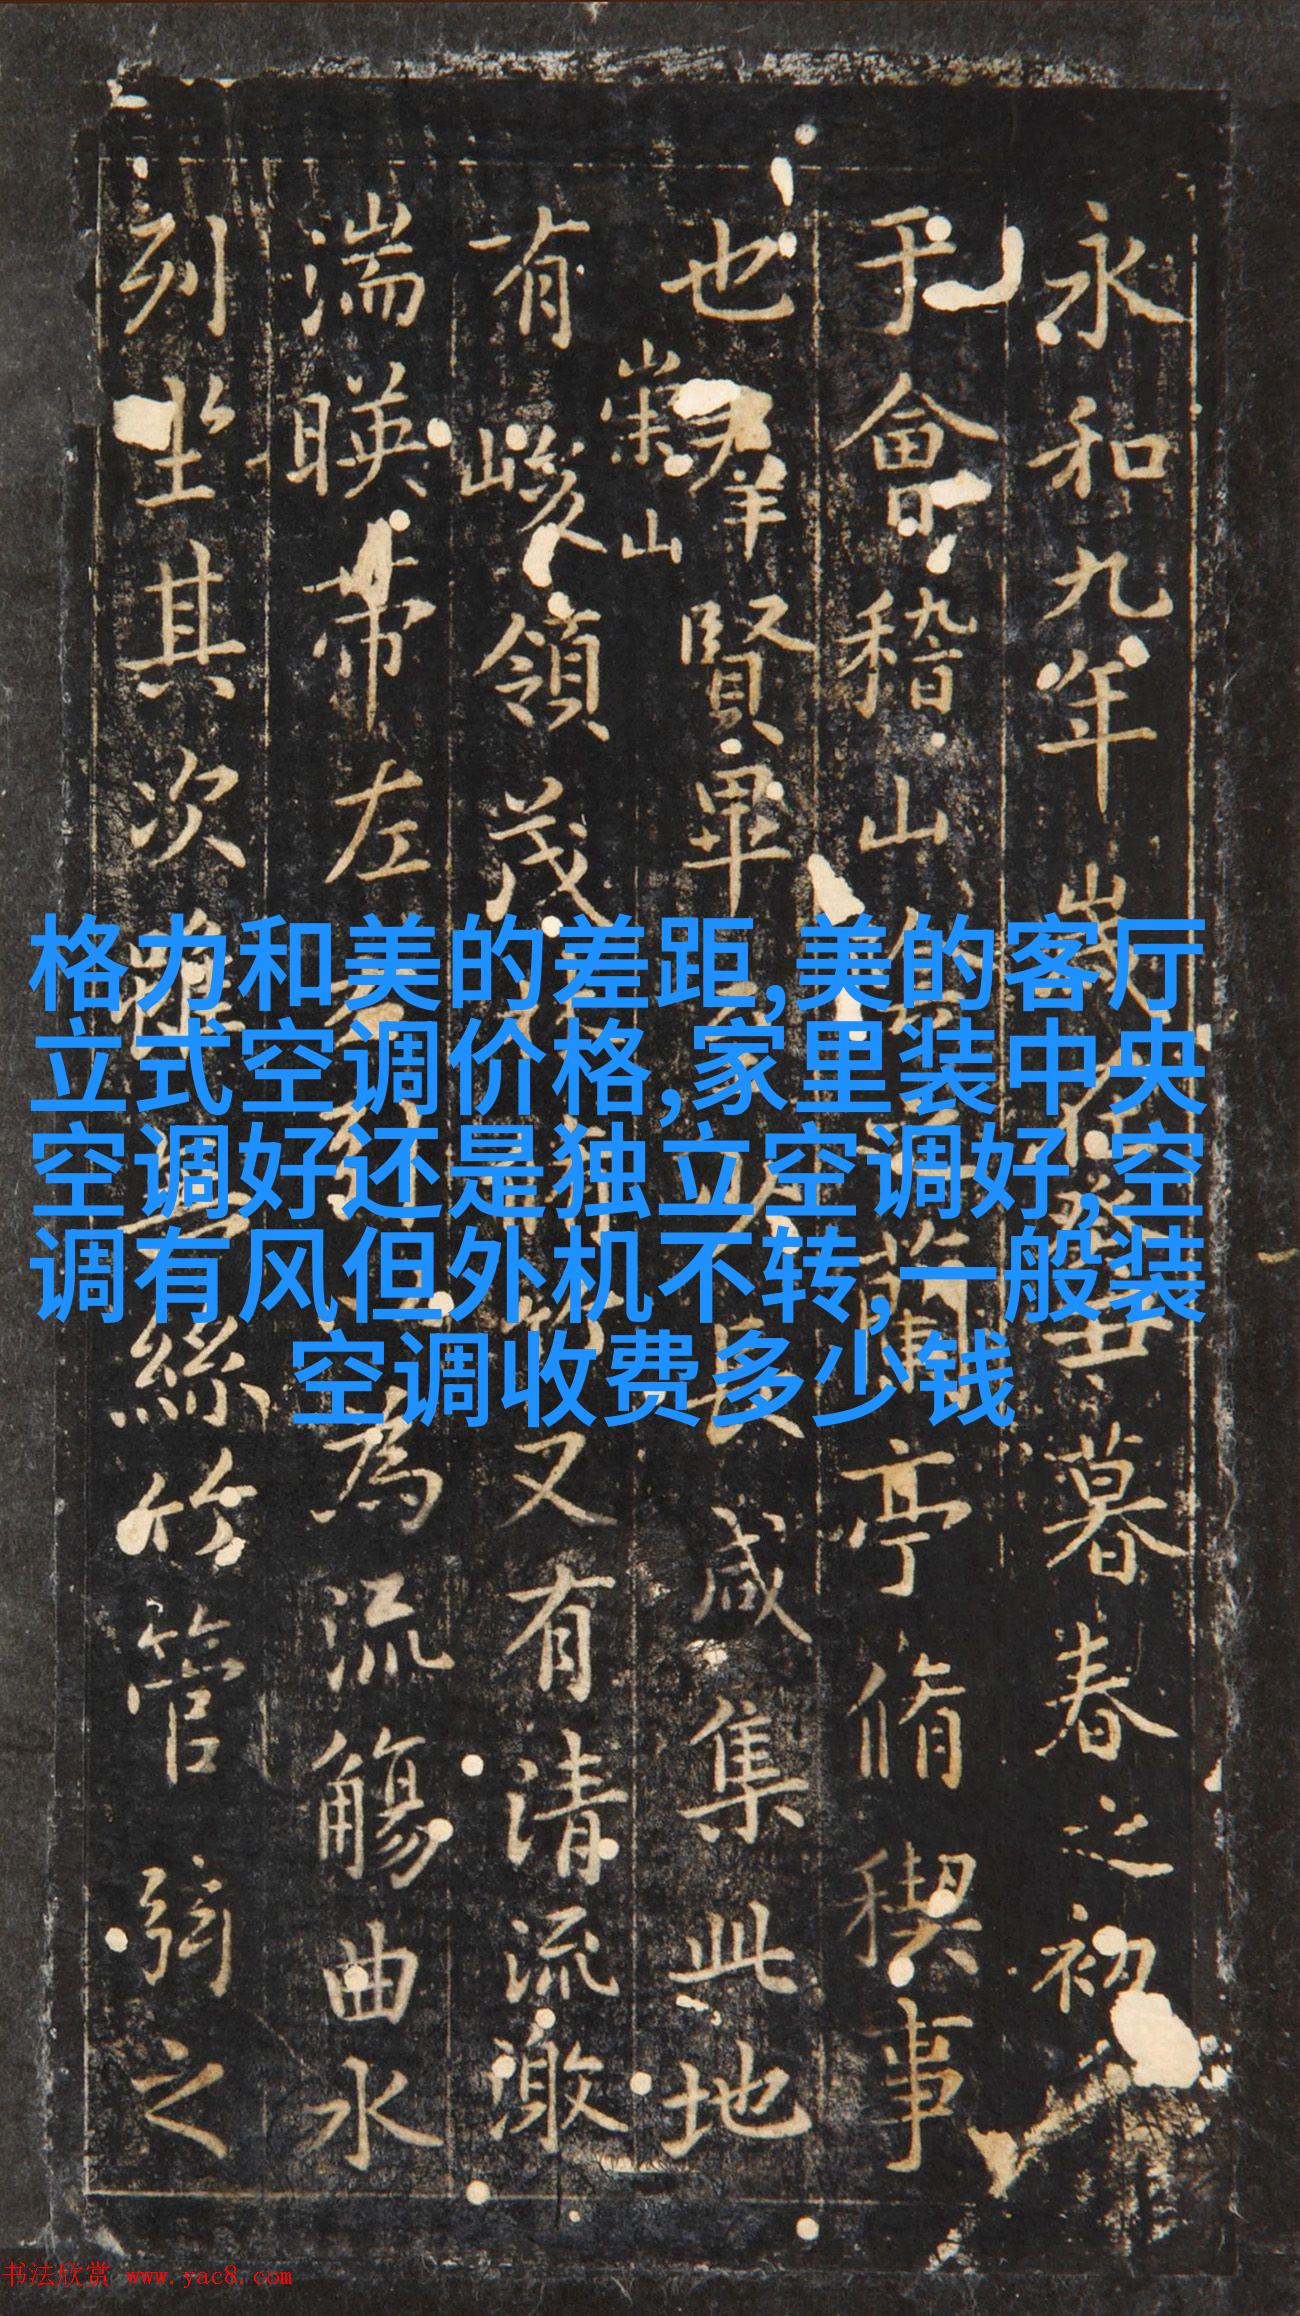 永和九年歲在癸丑暮春之初
于會稽山陰之蘭亭脩稧事
也羣賢畢至少長咸集此地
有崇山峻領茂林脩竹又有清流激
湍暎帶左右引以為流觴曲水
列坐其次雖無絲竹管弦之
格力和美的差距,美的客厅
立式空调价格,家里装中央
空调好还是独立空调好,空
调有风但外机不转,一般装
空调收费多少钱
书法欣赏 www.yac8.com